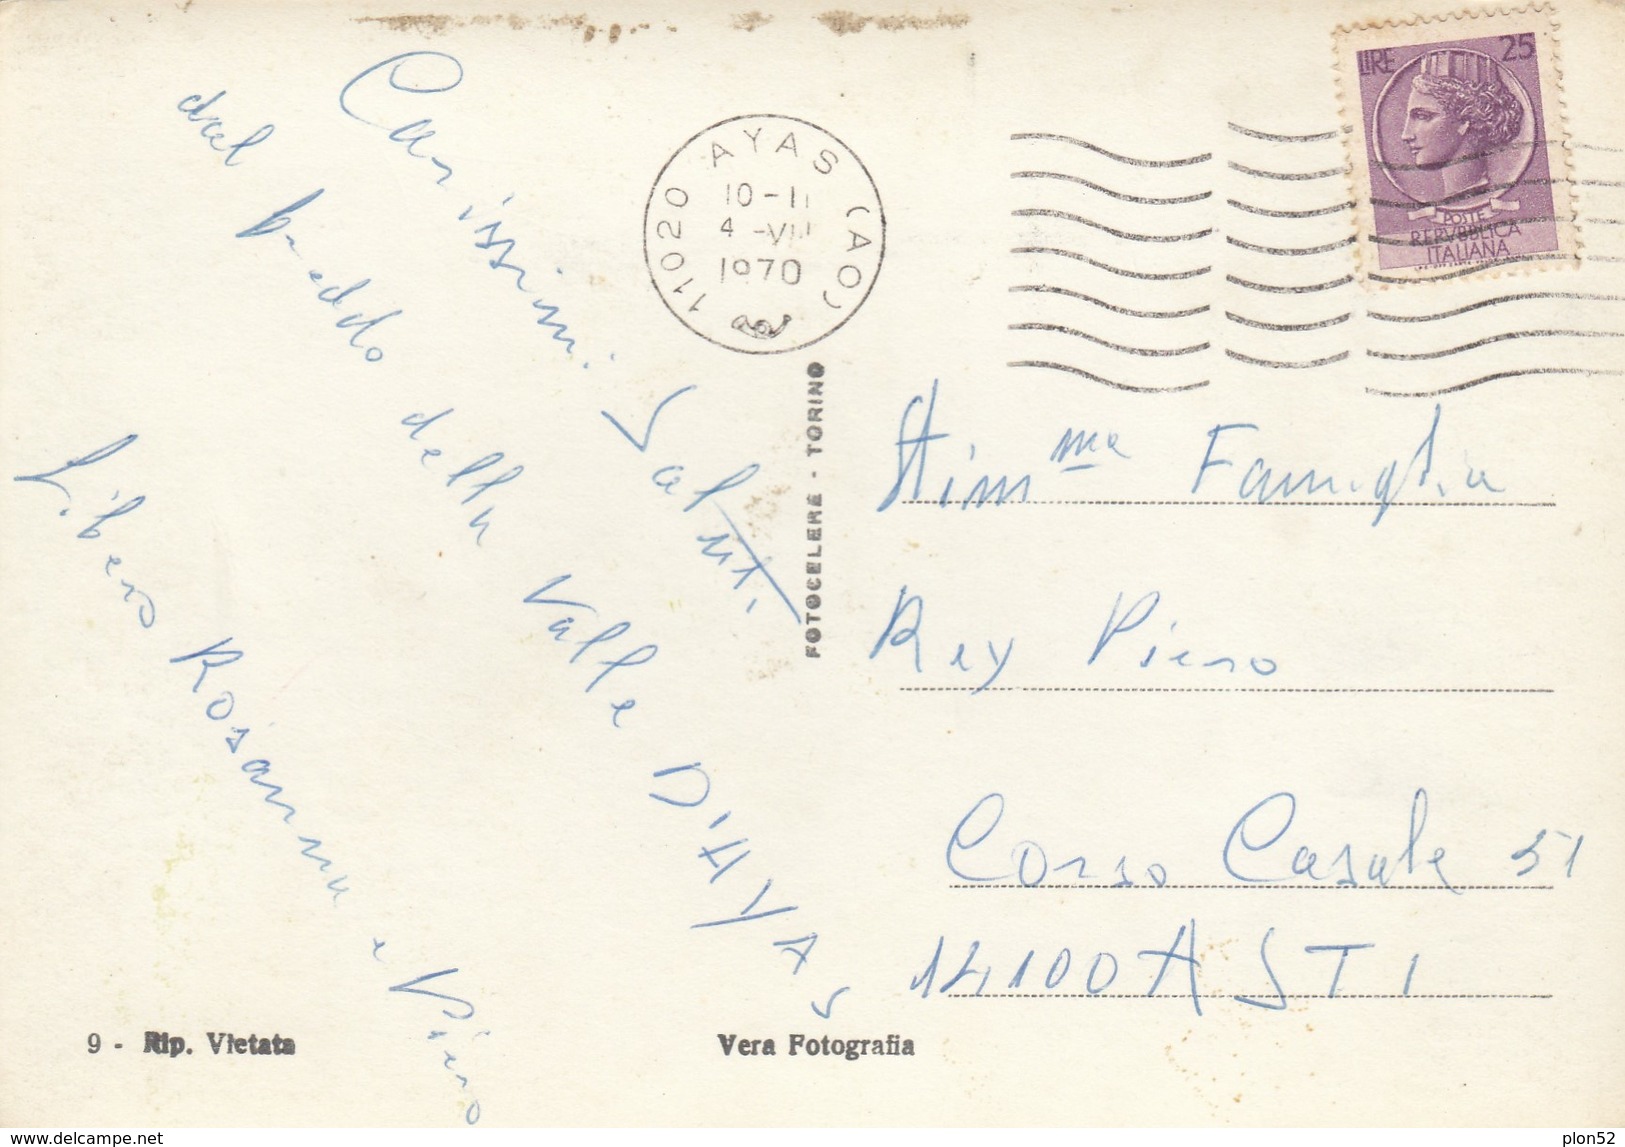 Carissimi Saluti
dal freddo della Valle D'AYAS
Libero Rosanna e Piero
11020 AYAS (AO)
10-11
4-VIII
1970
LIRE 25
POSTE
REPVBBLICA
ITALIANA
FOTOCELERE - TORINO
Stim^ma Famiglia
Rey Piero
Corso Casale 51
14100 ASTI
9 - Rip. Vietata
Vera Fotografia
www.delcampe.net
plon52